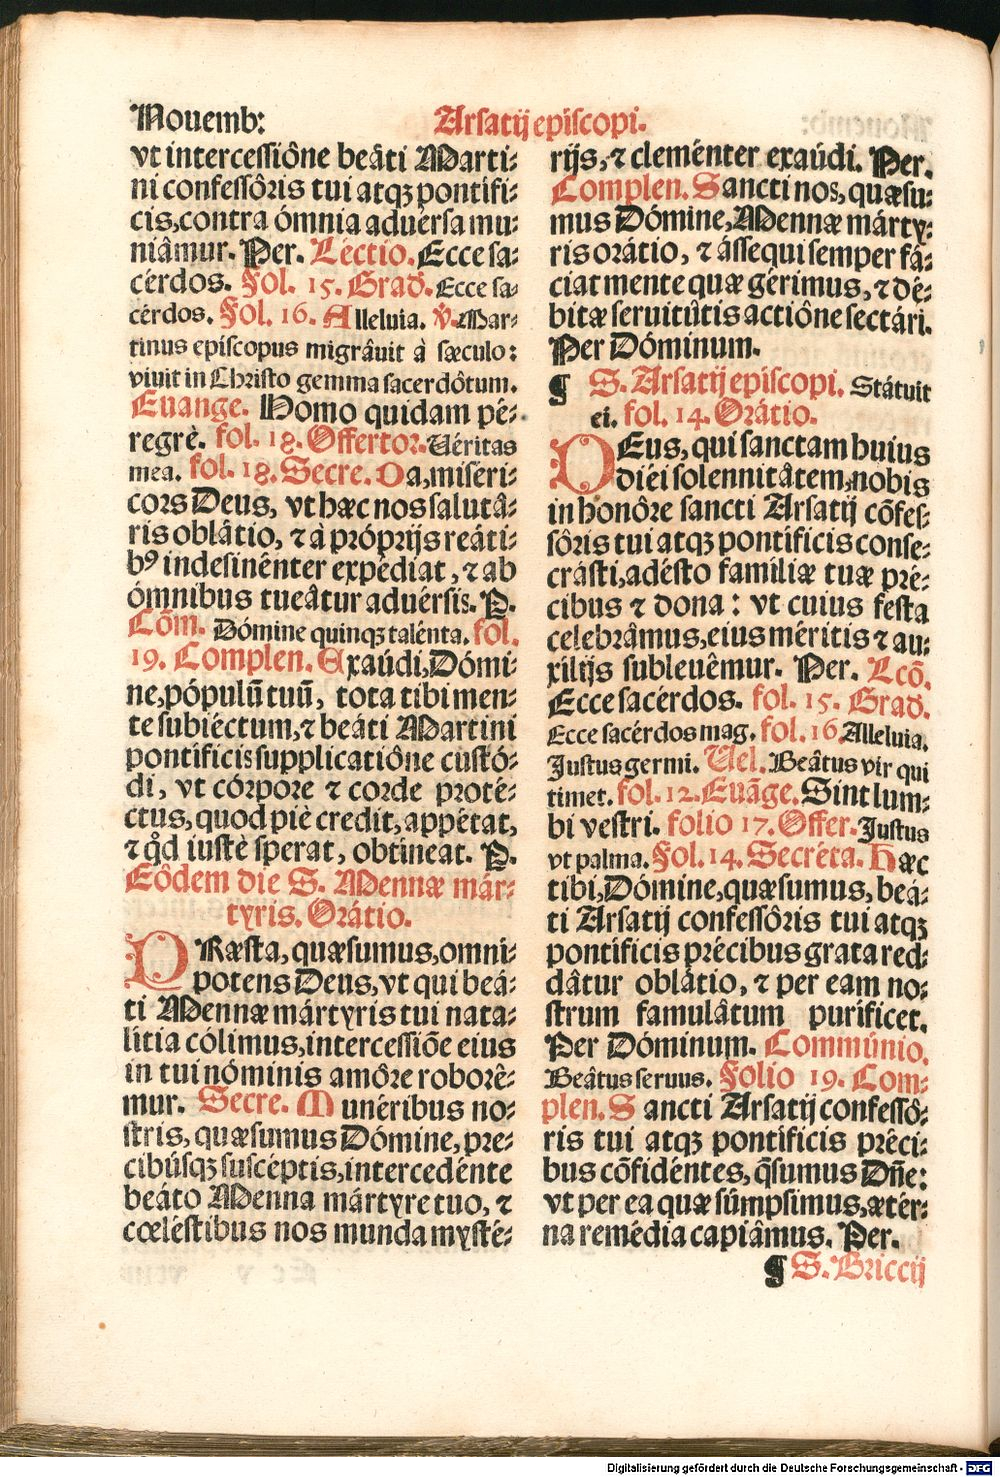 Nouemb:
Arsatij episcopi.
vt intercessiône beâti Marti-
ni confessôris tui atqꝫ pontifi-
cis, contra ómnia aduersa mu-
niâmur. Per. Léctio. Ecce sa-
cérdos. Fol. 15. Grad. Ecce sa-
cérdos. Fol. 16. Alleluia. ℣. Mar-
tinus episcopus migrâuit à sæculo:
viuit in Christo gemma sacerdôtum.
Euange. Homo quidam pé-
regrè. fol. 18. Offertor. Véritas
mea. fol. 18. Secre. Da, miséri-
cors Deus, vt hæc nos salutâ-
ris oblâtio, ⁊ à próprijs reáti-
bꝰ indesinénter expédiat, ⁊ ab
ómnibus tueâtur aduérsis. P.
Cõm. Dómine quinqꝫ talénta. fol.
19. Complen. Exaúdi, Dómi-
ne, pópulũ tuũ, tota tibi men-
te subiéctum, ⁊ beáti Martini
pontificis supplicatiône custó-
di, vt córpore ⁊ corde proté-
ctus, quod piè credit, appétat,
⁊ qd̊ iustè sperat, obtineat. P.
Eôdem die S. Mennæ már-
tyris. Orátio.
PRæsta, quæsumus, omni-
potens Deus, vt qui beá-
ti Mennæ mártyris tui nata-
litia cólimus, intercessiõe eius
in tui nóminis amôre roborê-
mur. Secre. Munéribus no-
stris, quæsumus Dómine, pre-
cibúsqꝫ suscéptis, intercedénte
beáto Menna mártyre tuo, ⁊
cœléstibus nos munda mysté-
rijs, ⁊ cleménter exaúdi. Per.
Complen. Sancti nos, quæsu-
mus Dómine, Mennæ márty-
ris orátio, ⁊ ássequi semper fá-
ciat mente quæ gérimus, ⁊ dé-
bitæ seruitûtis actiône sectári.
Per Dóminum.
¶ S. Arsatij episcopi. Státuit
ei. fol. 14. Orátio.
DEus, qui sanctam huius
diéi solennitâtem, nobis
in honôre sancti Arsatij cõfes-
sôris tui atqꝫ pontificis conse-
crásti, adésto famíliæ tuæ pré-
cibus ⁊ dona: vt cuius festa
celebrâmus, eius méritis ⁊ au-
xilijs subleuêmur. Per. Lcõ.
Ecce sacérdos. fol. 15. Grad.
Ecce sacérdos mag. fol. 16. Alleluia.
Justus germi. Vel. Beâtus vir qui
timet. fol. 12. Euãge. Sint lum-
bi vestri. folio 17. Offer. Justus
vt palma. Fol. 14. Secréta. Hæc
tibi, Dómine, quæsumus, beá-
ti Arsatij confessôris tui atqꝫ
pontificis précibus grata red-
dâtur oblâtio, ⁊ per eam no-
strum famulâtum purificet.
Per Dóminum. Commúnio.
Beâtus seruus. Folio 19. Com-
plen. Sancti Arsatij confessô-
ris tui atqꝫ pontificis préci-
bus cõfidéntes, q̃sumus Dñe:
vt per ea quæ súmpsimus, ætér-
na remédia capiâmus. Per.
¶ S. Briccij
Digitalisierung gefördert durch die Deutsche Forschungsgemeinschaft - DFG